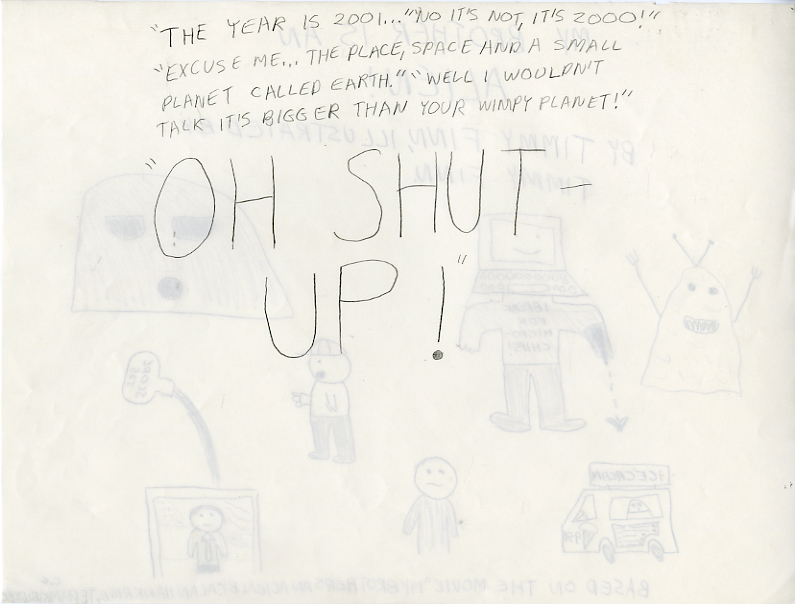 "THE YEAR IS 2001..."NO IT'S NOT, IT'S 2000!"
"EXCUSE ME... THE PLACE, SPACE AND A SMALL
PLANET CALLED EARTH." "WELL I WOULDN'T
TALK IT'S BIGGER THAN YOUR WIMPY PLANET!"
"OH SHUT-
UP!"